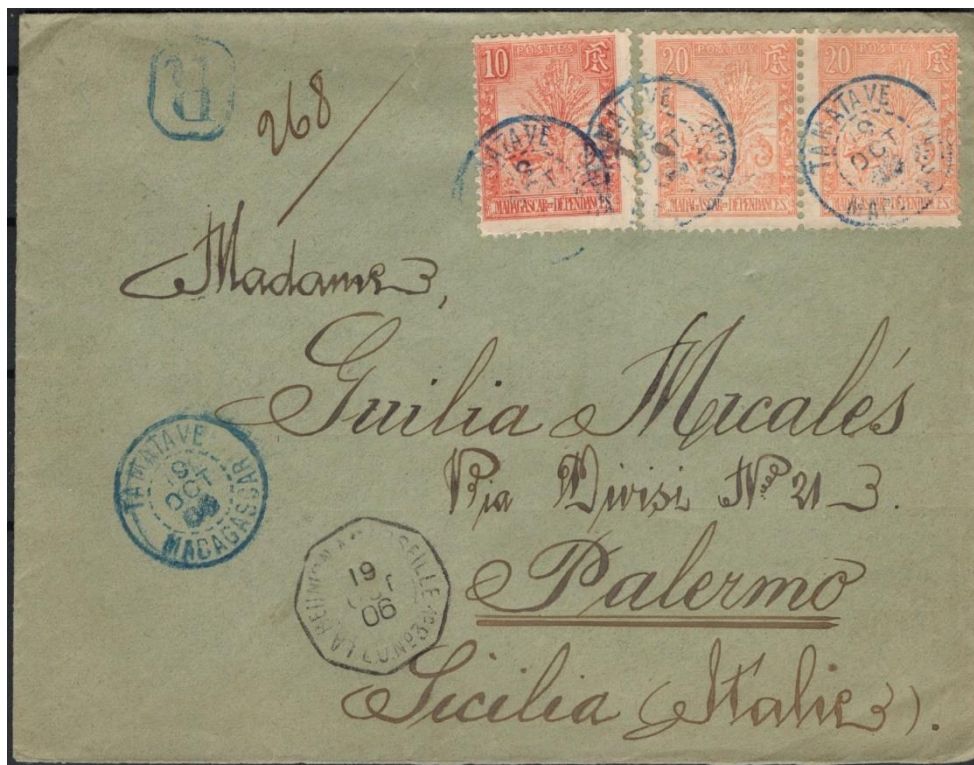 R
268
10 POSTES RF
MADAGASCAR ET DÉPENDANCES
20 POSTES RF
MADAGASCAR ET DÉPENDANCES
20 POSTES RF
MADAGASCAR ET DÉPENDANCES
TAMATAVE
OCT
Madame,
Guilia Mucalés
Via Divisi Nº 21
Palermo
Sicilia (Italie).
TAMATAVE
OCT
MADAGASCAR
LA REUNION A MARSEILLE
19
OCT
06
L.U.Nº3